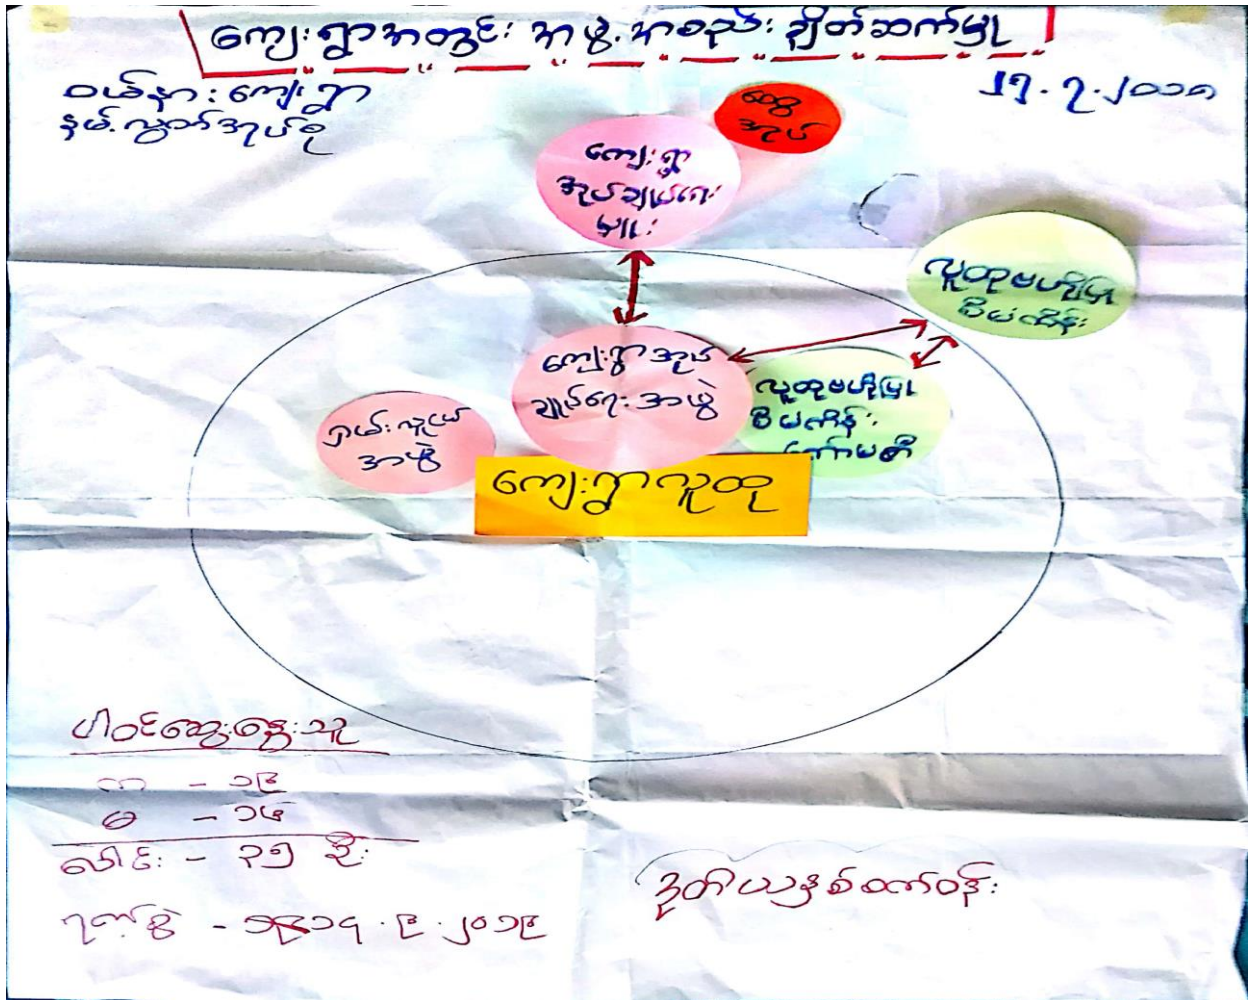 ကျေးရွာအတွင်း အဖွဲ့အစည်း ချိတ်ဆက်မှု
ဝယ်နား ကျေးရွာ
နမ့်လွတ်အုပ်စု
၁၅.၇.၂၀၁၈
ဆွေ
အုပ်
ကျေးရွာ
အုပ်ချုပ်ရေး
မှူး
လူထုဗဟိုပြု
စီမံကိန်း
ကျေးရွာအုပ်
ချုပ်ရေးအဖွဲ့
လူထုဗဟိုပြု
စီမံကိန်း
ကော်မတီ
ရှမ်းလူငယ်
အဖွဲ့
ကျေးရွာလူထု
ပါဝင်ဆွေးနွေးသူ
ကျား - ၁၉
မ - ၁၆
ပေါင်း - ၃၅ ဦး
ရက်စွဲ - ၁၅.၉.၂၀၁၉
ဒုတိယနှစ်စက်ဝန်း